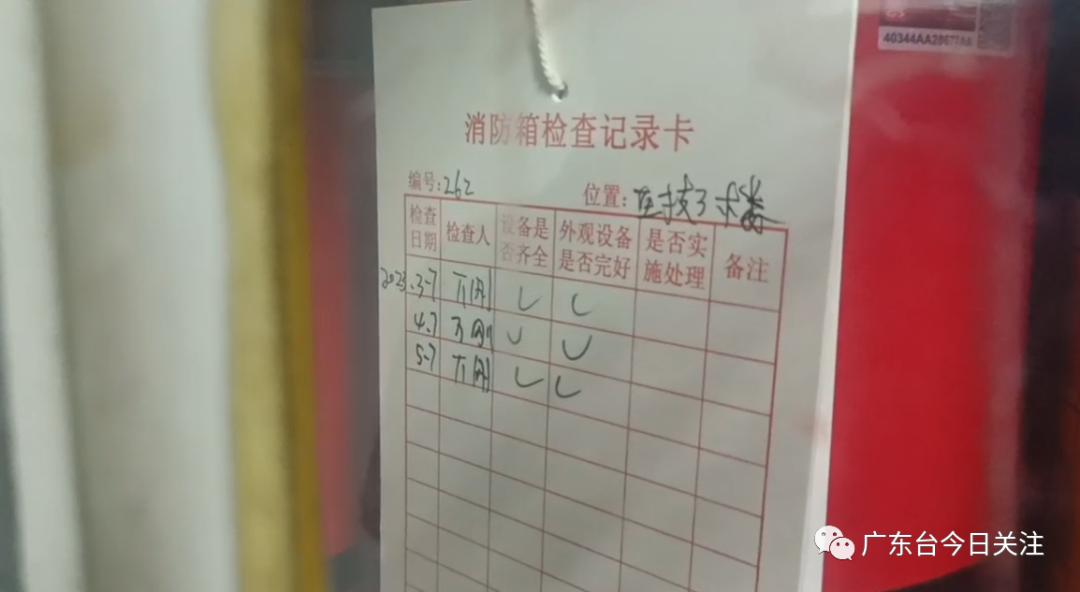 40344AA2867
消防箱检查记录卡
编号:262 位置:医技3楼
检查日期 检查人 设备是否齐全 外观设备是否完好 是否实施处理 备注
2023.3-7 ✓ ✓
4.7 ✓ ✓
5-7 ✓ ✓
广东台今日关注